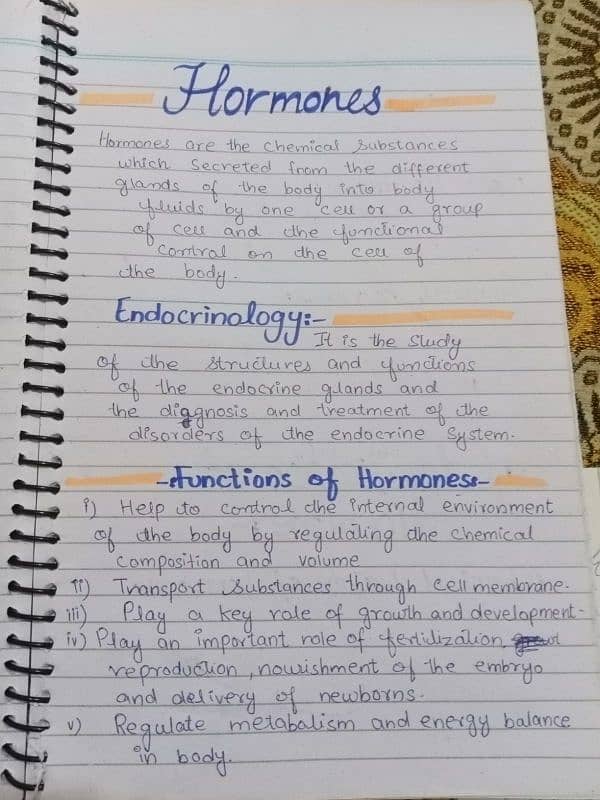 Hormones
Hormones are the chemical substances
which secreted from the different
glands of the body into body
fluids by one cell or a group
of cell and the functional
control on the cell of
the body.
Endocrinology:-
It is the study
of the structures and functions
of the endocrine glands and
the diagnosis and treatment of the
disorders of the endocrine system.
-:Functions of Hormones:-
i) Help to control the internal environment
of the body by regulating the chemical
composition and volume
ii) Transport substances through cell membrane.
iii) Play a key role of growth and development-
iv) Play an important role of fertilization,
reproduction, nourishment of the embryo
and delivery of newborns.
v) Regulate metabalism and energy balance
in body.